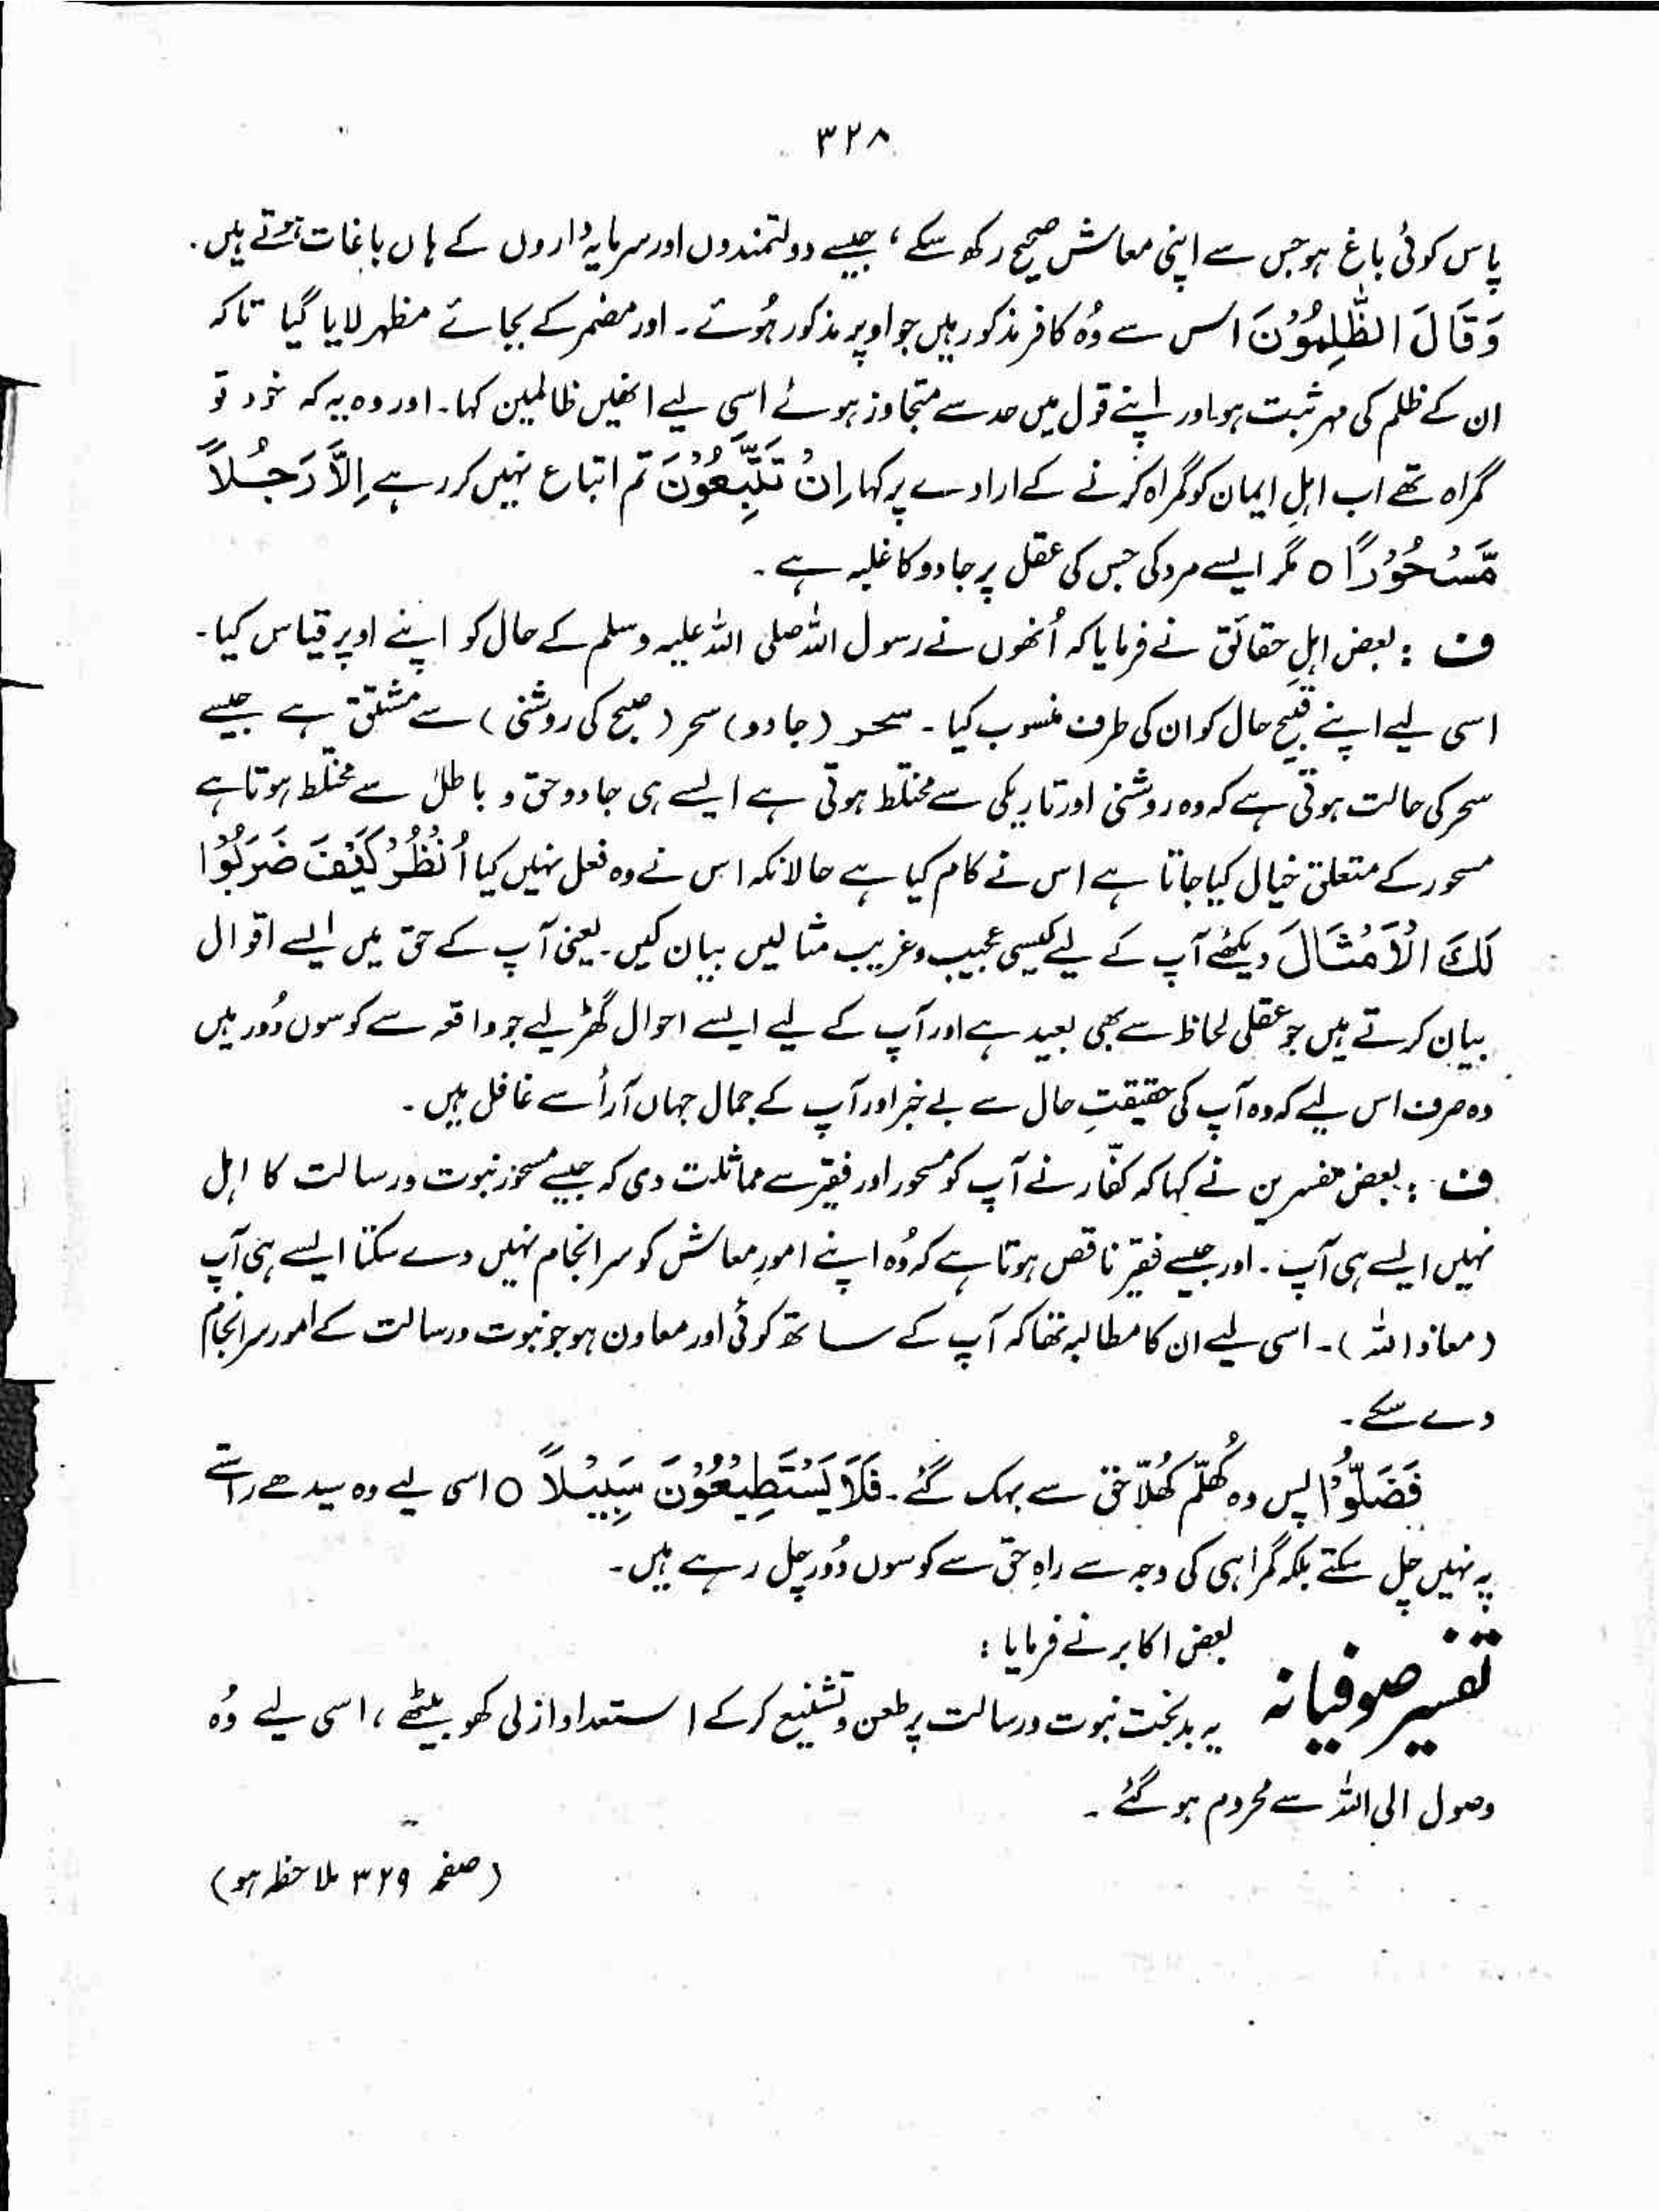 ۳۲۸
پاس کوئی باغ ہو جس سے اپنی معاش صحیح رکھ سکے، جیسے دولتمندوں اور سرمایہ داروں کے ہاں باغات ہوتے ہیں۔
وَقَالَ الظّٰلِمُوْنَ اس سے وُہ کافر مذکور ہیں جو اوپر مذکور ہُوئے۔ اور مضمر کے بجائے مظہر لایا گیا تاکہ
ان کے ظلم کی مہر ثبت ہو اور اپنے قول میں حد سے متجاوز ہوئے اسی لیے انھیں ظالمین کہا۔ اور وہ یہ کہ خود تو
گمراہ تھے اب اہلِ ایمان کو گمراہ کرنے کے ارادے پر کہا اِنْ تَتَّبِعُوْنَ تم اتباع نہیں کر رہے اِلَّا رَجُلًا
مَّسْحُوْرًا ○ مگر ایسے مرد کی جس کی عقل پر جادو کا غلبہ ہے۔
ف : بعض اہلِ حقائق نے فرمایا کہ اُنھوں نے رسول اللہ صلی اللہ علیہ وسلم کے حال کو اپنے اوپر قیاس کیا۔
اسی لیے اپنے قبیح حال کو ان کی طرف منسوب کیا۔ سحر (جادو) سحر (صبح کی روشنی) سے مشتق ہے جیسے
سحر کی حالت ہوتی ہے کہ وہ روشنی اور تاریکی سے مختلط ہوتی ہے ایسے ہی جادو حق و باطل سے مختلط ہوتا ہے
مسحور کے متعلق خیال کیا جاتا ہے اس نے کام کیا ہے حالانکہ اس نے وہ فعل نہیں کیا اُنْظُرْ كَيْفَ ضَرَبُوْا
لَكَ الْاَمْثَالَ دیکھئے آپ کے لیے کیسی عجیب و غریب مثالیں بیان کیں۔ یعنی آپ کے حق میں ایسے اقوال
بیان کرتے ہیں جو عقلی لحاظ سے بھی بعید ہے اور آپ کے لیے ایسے احوال گھڑ لیے جو واقعہ سے کوسوں دُور ہیں
وہ صرف اس لیے کہ وہ آپ کی حقیقتِ حال سے بے خبر اور آپ کے جمال جہاں آراُ سے غافل ہیں۔
ف : بعض مفسرین نے کہا کہ کفّار نے آپ کو مسحور اور فقیر سے مماثلت دی کہ جیسے مسحور نبوت و رسالت کا اہل
نہیں ایسے ہی آپ۔ اور جیسے فقیر ناقص ہوتا ہے کہ وُہ اپنے امورِ معاش کو سرانجام نہیں دے سکتا ایسے ہی آپ
(معاذ اللہ)۔ اسی لیے ان کا مطالبہ تھا کہ آپ کے ساتھ کوئی اور معاون ہو جو نبوت و رسالت کے امور سرانجام
دے سکے۔
فَضَلُّوْا پس وہ کُھلّم کُھلّا حق سے بہک گئے۔ فَلَا يَسْتَطِيْعُوْنَ سَبِيْلًا ○ اسی لیے وہ سیدھے راستے
پہ نہیں چل سکتے بلکہ گمراہی کی وجہ سے راہِ حق سے کوسوں دُور چل رہے ہیں۔
بعض اکابر نے فرمایا :
تفسیر صوفیانہ
یہ بدبخت نبوت و رسالت پر طعن و تشنیع کر کے استعداد ازلی کھو بیٹھے، اسی لیے وُہ
وصول الی اللہ سے محروم ہو گئے۔
(صفحہ ۳۲۹ ملاحظہ ہو)